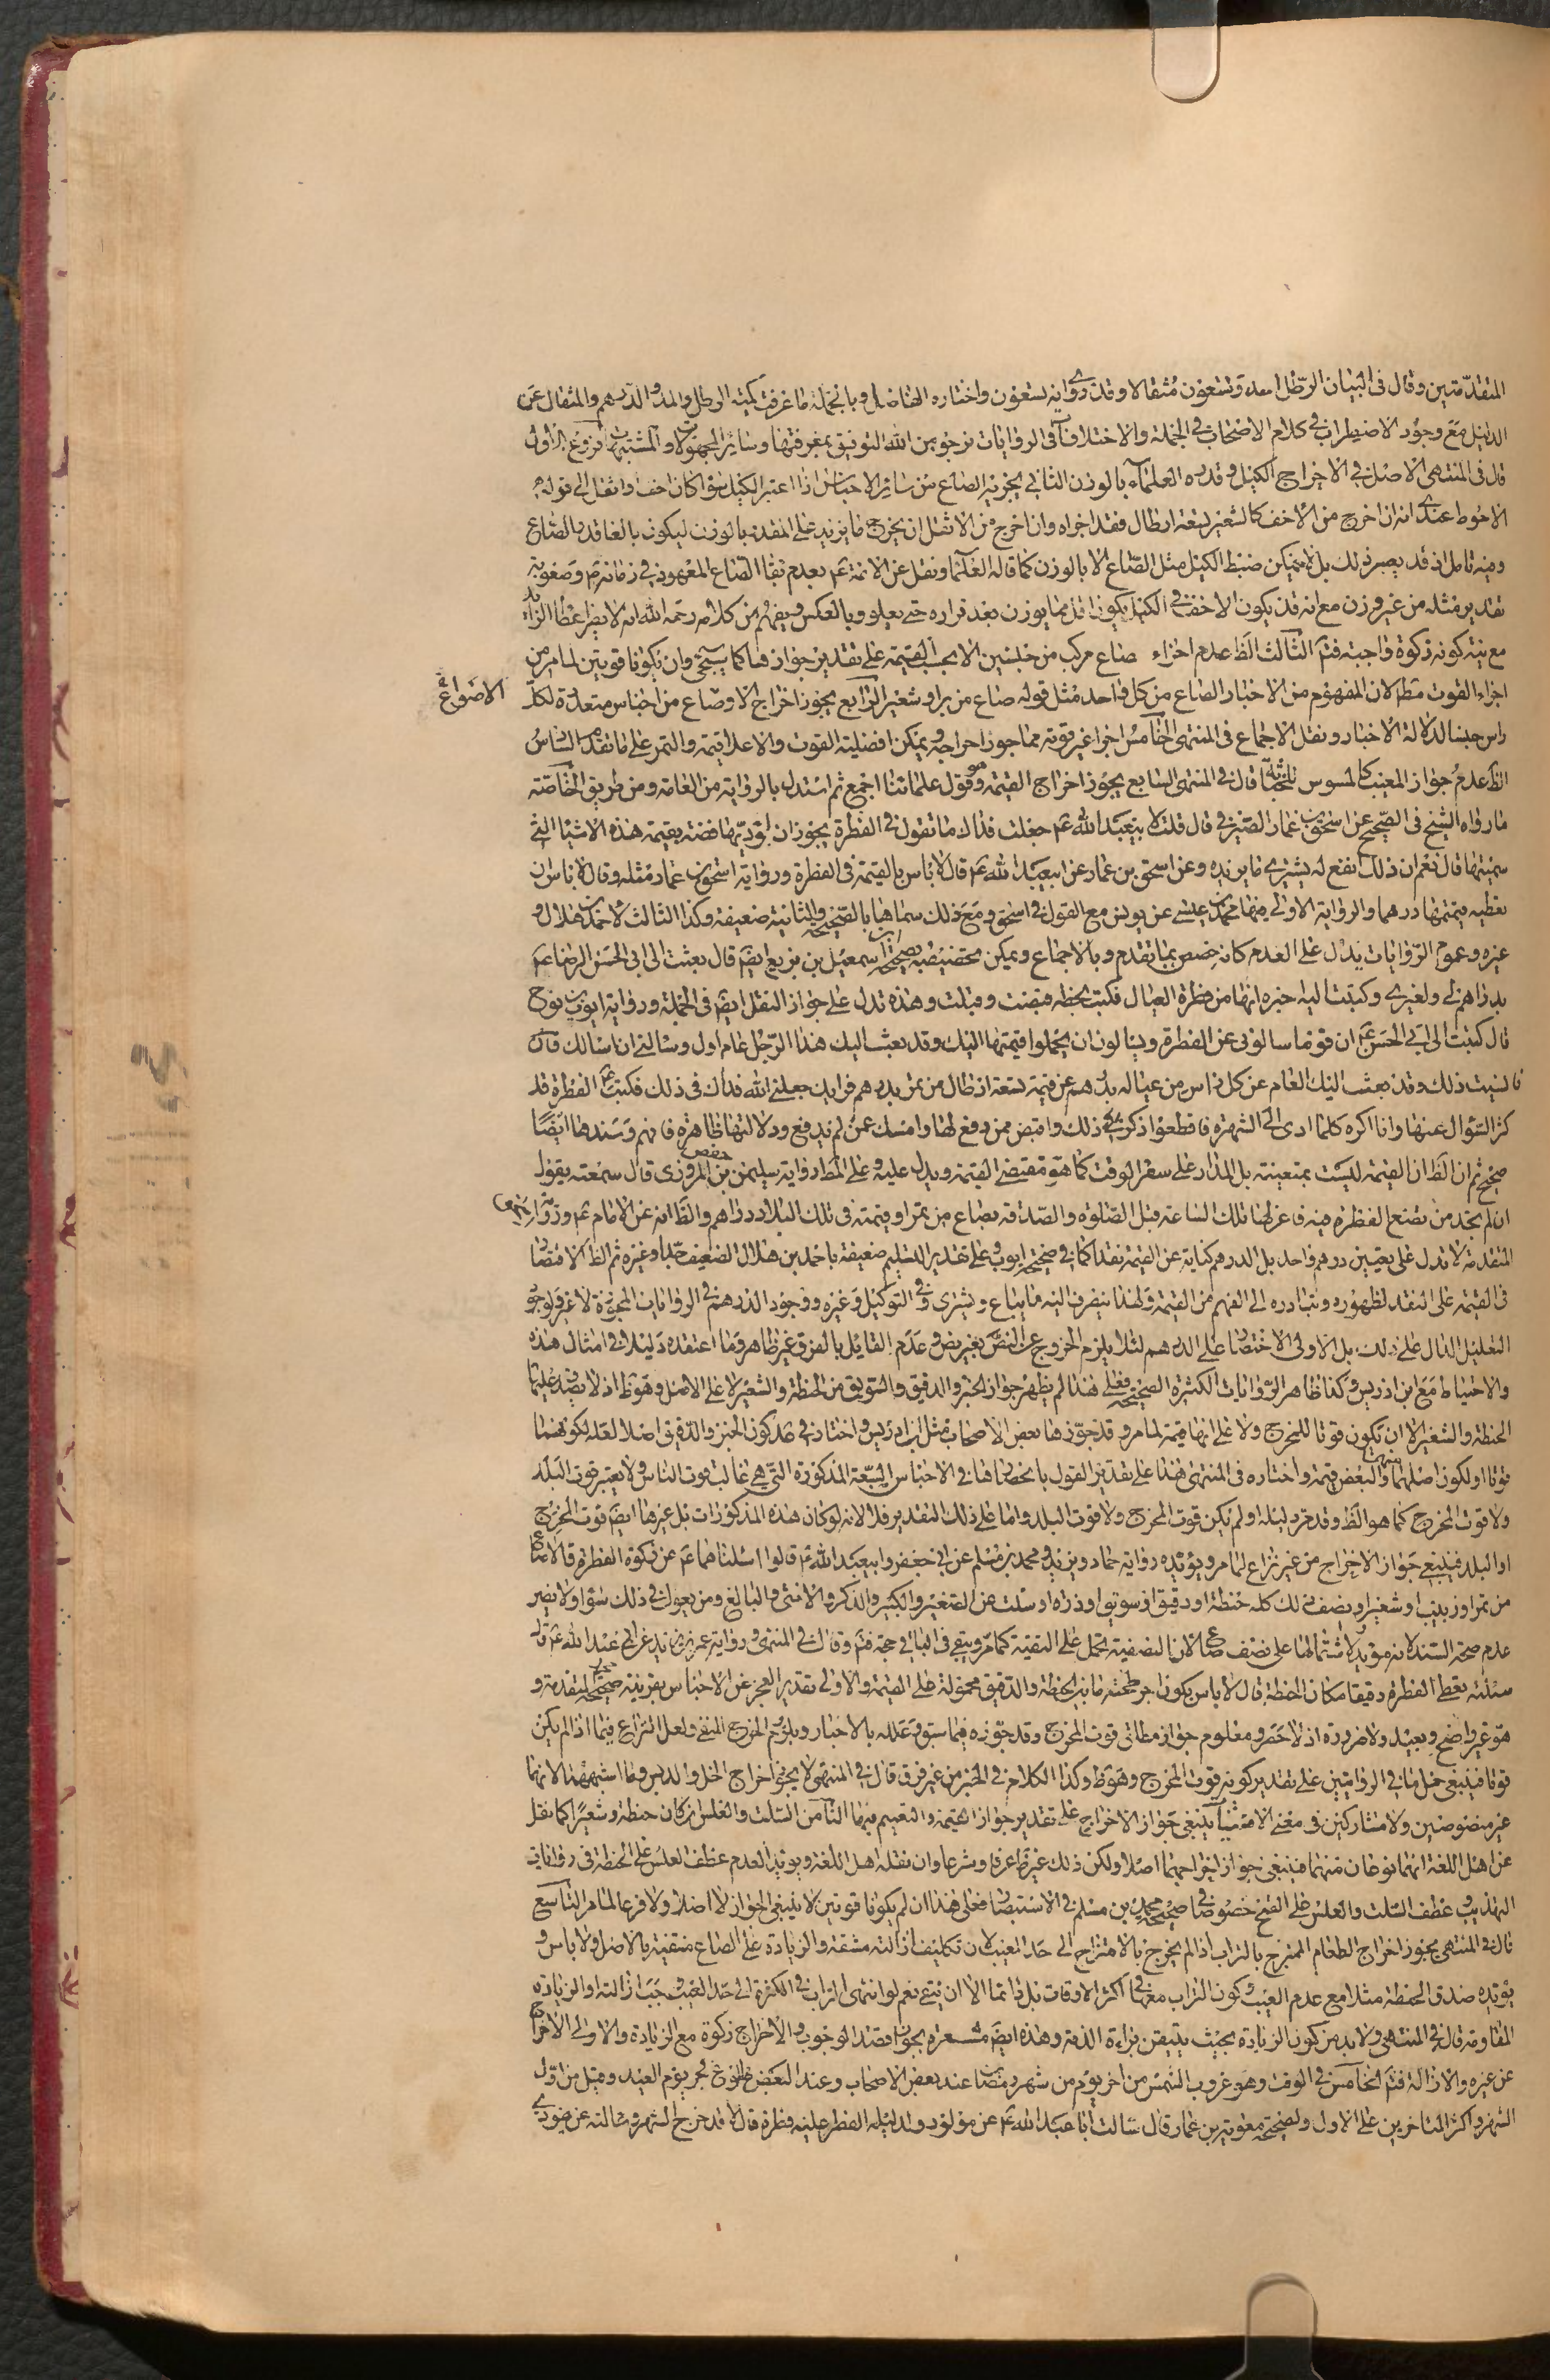 المتقدمتين وقال فى البيان الرطل احد وتسعون مثقالا وقد روى انه تسعون واختاره الفاضل وبالجملة ما عرفت كمية الرطل والمد والدرهم والمثقال عن
الدليل مع وجود الاضطراب فى كلام الاصحاب فى الجملة والاختلاف فى الروايات نرجو من الله التوفيق بمعرفتها وسائر المجهولات والمشتبهات فروع الاول
قال فى المنتهى الاصل فى الاخراج الكيل وقدره العلماء بالوزن الثانى يجزيه الصاع من سائر الاجناس اذا اعتبر الكيل سواء كان اخف او اثقل الى قوله
الاحوط عندى انه ان اخرج من الاخف كالشعير تسعة ارطال فقد اجزاه وان اخرج من الاثقل ان يخرج ما يزيد على المقدر بالوزن ليكون بالغا قدر الصاع
وفيه تامل اذ قد يصير ذلك بل لا يمكن ضبط الكيل مثل الصاع الا بالوزن كما قاله العلماء ونقل عن الائمة ع بعدم بقاء الصاع المعهود فى زمانهم وصعوبة
تقدير مثله من غير وزن مع انه قد يكون الاخف فى الكيل يكون اقل مما يوزن بعد قراره حتى يعلو وبالعكس ويفهم من كلامه رحمه الله انه لا يضر اعطاء الزائد
مع نية كونه زكوة واجبة فتم الثالث الظ عدم اجزاء صاع مركب من جنسين الا بحسب القيمة على تقدير جوازها كما يسيجئ وان يكونا قوتين لما مر من
اجزاء القوت مط لان المفهوم من الاخبار الصاع من كل واحد مثل قوله صاع من بر او شعير الرابع يجوز اخراج الاوصاع من اجناس متعددة لكل
الاصواع
راس جنسا لدلالة الاخبار ونقل الاجماع فى المنتهى الخامس اجزاء غير قوته مما جوز اخراجه ويمكن افضلية القوت والاعلا قيمة والتمر على ما تقدم السادس
الظ عدم جواز المعيب كالمسوس قال فى المنتهى السابع يجوز اخراج القيمة وهو قول علمائنا اجمع ثم استدل بالرواية من العامة ومن طريق الخاصة
ما رواه الشيخ فى الصحيح عن اسحق بن عمار الصيرفى قال قلت لابيعبد الله ع جعلت فداك ما تقول فى الفطرة يجوز ان اؤديها فضة بقيمة هذه الاشياء التى
سميتها قال نعم ان ذلك انفع له يشترى ما يريده وعن اسحق بن عمار عن ابيعبد الله ع قال لا باس بالقيمة فى الفطرة ورواية اسحق بن عمار مثله وقال لا باس ان
تعطيه قيمتها درهما والرواية الاولى فيها محمد بن عيسى عن يونس مع القول فى اسحق ومع ذلك سماها بالصحيحة والثانية ضعيفة وكذا الثالث لاحمد بن هلال و
غيره وعموم الروايات يدل على العدم كانه خصص بما تقدم وبالاجماع ويمكن تخصيصه بصحيحة اسمعيل بن بزيع ايضم قال بعثت الى ابى الحسن الرضا ع
بدراهم لى ولغيرى وكتبت اليه اخبره انها من فطرة العيال فكتب بخطه قبضت وقبلت وهذه تدل على جواز النقل ايضم فى الجملة ورواية ايوب بن نوح
قال كتبت الى ابى الحسن ع ان قوما سالونى عن الفطرة ويسالون ان يحملوا قيمتها اليك وقد بعث اليك هذا الرجل عام اول وسالنى ان اسالك فان
فانسيت ذلك وقد بعث اليك العام عن كل راس من عياله بدرهم عن قيمة تسعة ارطال من تمر بدرهم فرايك جعلنى الله فداك فى ذلك فكتب ع الفطرة قد
كثر السؤال عنها وانا اكره كلما ادى الى الشهرة فاقطعوا ذكر ذلك واقبض ممن دفع لها وامسك عمن لم يدفع ودلالتها ظاهرة فافهم وسندها ايضا
صحيح ثم ان الظ ان القيمة ليست بمتعينة بل المدار على سعر الوقت كما هو مقتضى القيمة ويدل عليه وعلى المط رواية سليمن بن حفص المروزى قال سمعته يقول
ان لم تجد من تضع الفطرة فيه فاعزلها تلك الساعة قبل الصلوة والصدقة بصاع من تمر او قيمته فى تلك البلاد دراهم والظ انه عن الامام ع ورواية اسحق
المتقدمة لا تدل على تعيين درهم واحد بل الدرهم كناية عن القيمة نقدا كما فى صحيحة ايوب وعلى تقدير التسليم ضعيفة باحمد بن هلال الضعيف جدا وغيره ثم الظ الاقتصار
فى القيمة على النقد لظهوره وتبادره الى الفهم من القيمة ولهذا ينصرف اليه ما يباع ويشترى وفى التوكيل وغيره ووجود الدرهم فى الروايات المجوزة لا غير ولوجود
التعليل الدال على ذلك بل الاولى الاختصار على الدرهم لئلا يلزم الخروج عن النص بغير نص وعدم القايل بالفرق غير ظاهر وما اعتقده دليلا فى امثال هذه
والاحتياط مع ابن ادريس وكذا ظاهر الروايات الكثيرة الصحيحة فعلى هذا لم يظهر جواز الخبز والدقيق والسويق من الحنطة والشعير لا على الاصل وهو ظ اذ لا يصدق عليها
الحنطة والشعير الا ان يكون قوتا للمخرج ولا على انها قيمة لما مر وقد جوزها بعض الاصحاب مثل ابن ادريس واختار فى كون الخبز والدقيق اصلا لعله لكونهما
قوتا او لكون اصلهما منها والبعض قيمة واختاره فى المنتهى هذا على تقدير القول بانحصارها فى الاجناس السبعة المذكورة التى هى غالب قوت الناس ولا يعتبر قوت البلد
ولا قوت المخرج كما هو الظ وقد مر دليله او لم يكن قوت المخرج ولا قوت البلد واما على ذلك التقدير فلا لانه لو كان هذه المذكورات بل غيرها ايضم قوت المخرج
او البلد فينبغى جواز الاخراج من غير نزاع لما مر ويؤيده رواية حماد وبريد ومحمد بن مسلم عن ابى جعفر وابيعبد الله ع قالوا سئلناهما ع عن زكوة الفطرة قالا صاع
من تمر او زبيب او شعير او نصف ذلك كله حنطة او دقيق او سويق او ذرة او سلت عن الصغير والكبير والذكر والانثى والبالغ ومن يعول فى ذلك سواء ولا يضر
عدم صحة السند لانه مؤيد ولاشتمالها على نصف صاع لان النصفية تحمل على التقية كما مر ويبقى فى الباقى حجة فتم وقال فى المنتهى ورواية عمر بن يزيد عن ابى عبد الله ع قال
سئلته يعطى الفطرة دقيقا مكان الحنطة قال لا باس يكون اجر طحنه ما بين الحنطة والدقيق محمولة على القيمة والاولى تقدير العجز عن الاجناس بقرينة صحيحة المتقدمة و
هو غير واضح وبعيد ولا ضرورة اذ لا حصر ومعلوم جواز مطلق قوت المخرج وقد جوزه فيما سبق وعلله بالاخبار وبلزوم الحرج المنفى ولعل النزاع فيما اذا لم يكن
قوتا فينبغى حمل ما فى الروايتين على تقدير كونه قوت المخرج وهو ظ وكذا الكلام فى الخبز من غير فرق قال فى المنتهى لا يجزى اخراج الخل والدبس وما اشبههما لانهما
غير منصوصين ولا مشاركين فى معنى الاقتيات ينبغى جواز الاخراج على تقدير جواز القيمة والتعميم فيها الثامن السلت والعلس ان كان حنطة وشعيرا كما نقل
عن اهل اللغة انهما نوعان منهما فينبغى جواز اخراجهما اصلا ولكن ذلك غير ظ عرفا وشرعا وان نقله اهل اللغة ويؤيد العدم عطف العلس على الحنطة فى روايات
التهذيب وعطف السلت والعلس على القمح خصوصا فى صحيحة محمد بن مسلم فى الاستبصار فعلى هذا ان لم يكونا قوتين لا ينبغى الجواز لا اصلا ولا فرعا لما مر التاسع
قال فى المنتهى يجوز اخراج الطعام الممتزج بالتراب اذا لم يخرج بالامتزاج الى حد المعيب لان تكليف ازالته مشقة والزيادة على الصاع منفية بالاصل ولا باس و
يؤيده صدق الحنطة مثلا مع عدم العيب وكون التراب معها فى اكثر الاوقات بل دائما الا ان ينقى نعم لو انتهى التراب فى الكثرة الى حد العيب وجبت ازالته او الزيادة
المقاومة قال فى المنتهى ولا بد من كون الزيادة بحيث يتيقن براءة الذمة وهذه ايضم مشعرة بجواز قصد الوجوب والاخراج زكوة مع الزيادة والاولى الاخراج
عن غيره والازالة فتم الخامس فى الوقت وهو غروب الشمس من اخر يوم من شهر رمضان عند بعض الاصحاب وعند البعض طلوع فجر يوم العيد وقيل من اول
الشهر واكثر المتاخرين على الاول ولصحيحة معوية بن عمار قال سالت ابا عبد الله ع عن مولود ولد ليلة الفطر عليه فطرة قال لا قد خرج الشهر وسالته عن يهودى